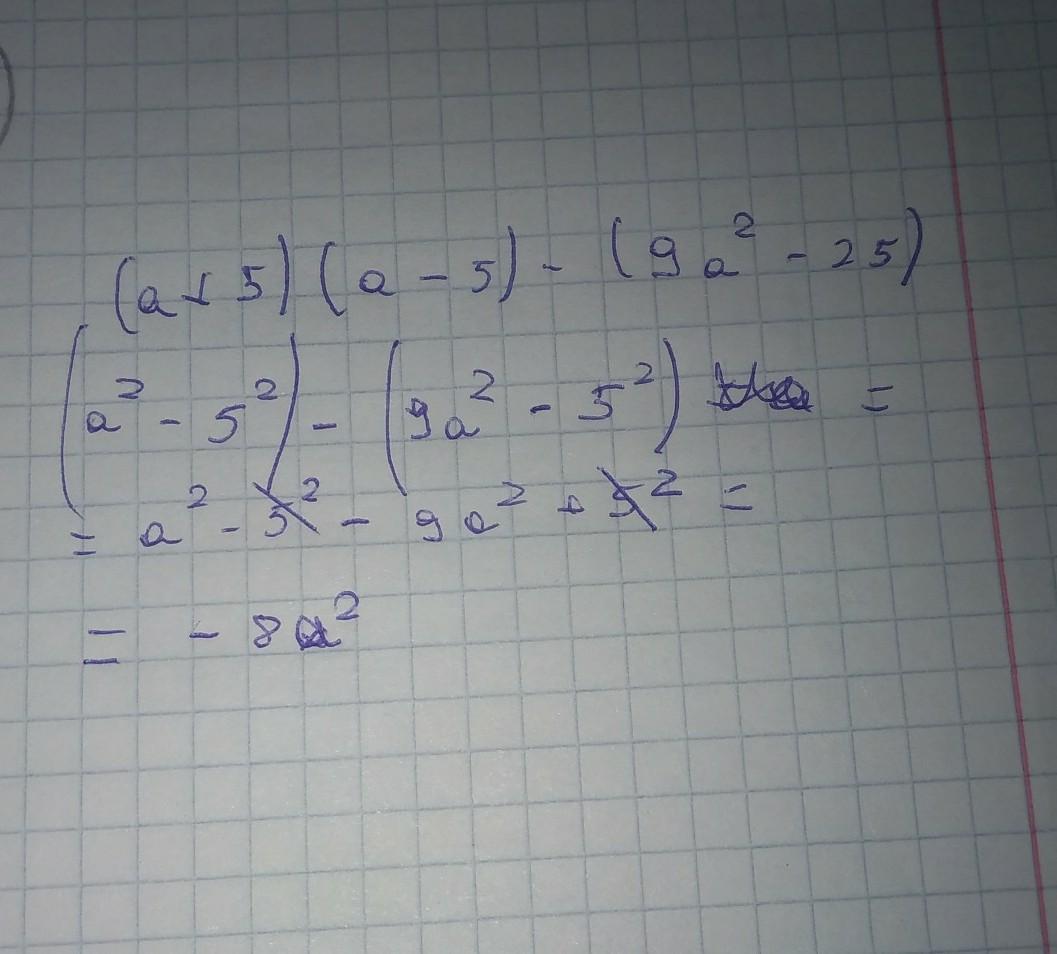 (a + 5) (a - 5) - (9a² - 25)
(a² - 5²) - (9a² - 5²) =
= a² - 5² - 9a² + 5² =
= - 8a²